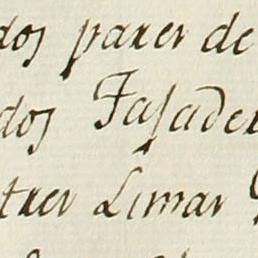 dos parer de
dos Fasader
trer Limar